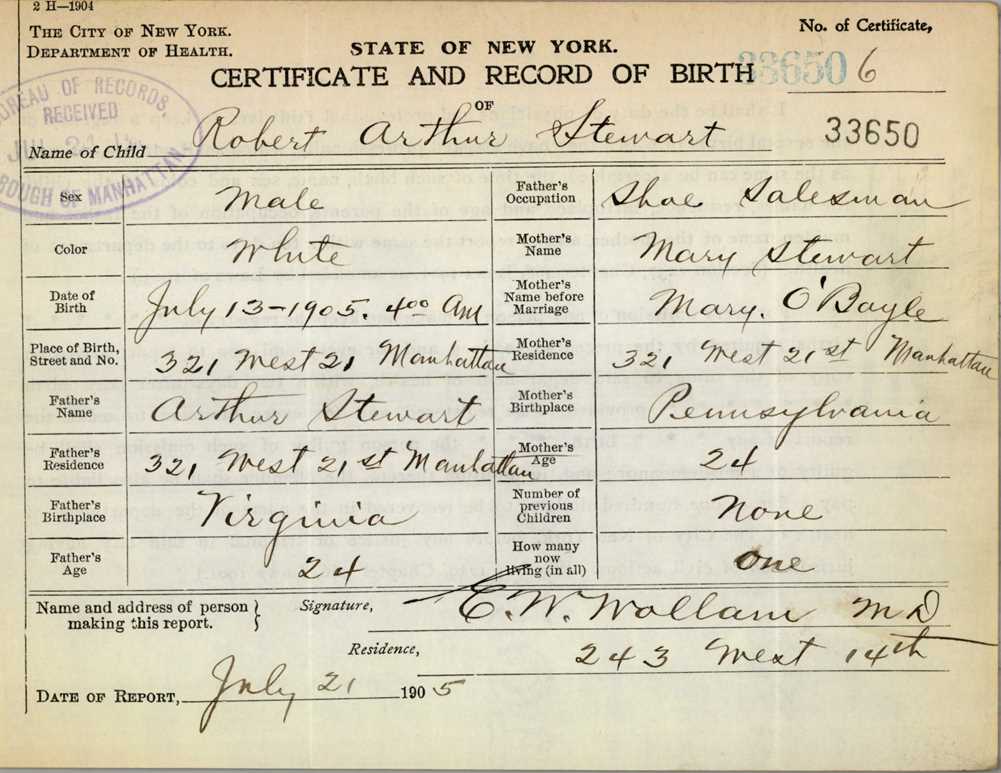 2 H—1904
THE CITY OF NEW YORK.
DEPARTMENT OF HEALTH.
No. of Certificate,
STATE OF NEW YORK.
CERTIFICATE AND RECORD OF BIRTH
33650 6
OF
BUREAU OF RECORDS
RECEIVED
JUL
BOROUGH OF MANHATTAN
Name of Child Robert Arthur Stewart
33650
Sex Male
Father's Occupation Shoe Salesman
Color White
Mother's Name Mary Stewart
Date of Birth July 13-1905. 4⁰⁰ Am
Mother's Name before Marriage Mary. O'Boyle
Place of Birth, Street and No. 321 West 21 Manhattan
Mother's Residence 321 West 21st Manhattan
Father's Name Arthur Stewart
Mother's Birthplace Pennsylvania
Father's Residence 321 West 21st Manhattan
Mother's Age 24
Father's Birthplace Virginia
Number of previous Children None
Father's Age 24
How many now living (in all) One
Name and address of person making this report.
Signature, E. W. Wollam M D
Residence, 243 West 14th
DATE OF REPORT, July 21 1905